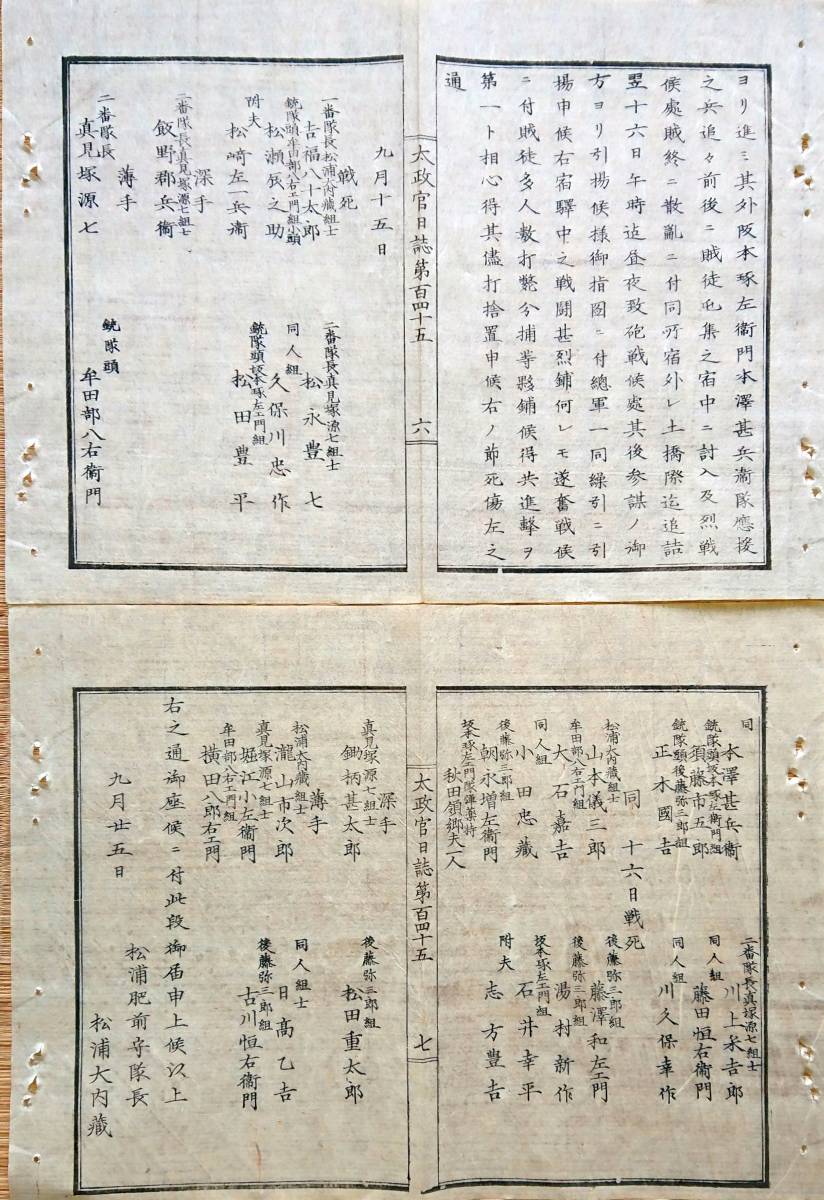 ヨリ進ミ其外阪本琢左衞門本澤甚兵衞隊應援
之兵追々前後ニ賊徒屯集之宿中ニ討入及烈戰
候處賊終ニ散亂ニ付同所宿外レ土橋際迄追詰
翌十六日午時迄昼夜致砲戰候處其後参謀ノ御
方ヨリ引揚候様御指図ニ付總軍一同繰引ニ引
揚申候右宿驛中之戰鬪甚烈鋪何レモ遂奮戰候
ニ付賊徒多人數打斃分捕等夥鋪候得共進擊ヲ
第一ト相心得其儘打捨置申候右ノ節死傷左之
通
太政官日誌第百四十五
六
九月十五日
戰死
一番隊長松浦大内藏組士
吉福八十太郎
二番隊長真見塚源七組士
松永豊七
銃隊頭牟田部八右エ門組小頭
松瀬辰之助
同人組
久保川忠作
附夫
松﨑左一兵衞
銃隊頭坂本琢左エ門組
松田豊平
深手
二番隊長真見塚源七組士
飯野郡兵衞
薄手
二番隊長
真見塚源七
銃隊頭
牟田部八右衞門
同
本澤甚兵衞
二番隊長真塚源七組士
川上米吉郎
銃隊頭坂本琢左衞門組
須藤市五郎
同人組
藤田恒右衞門
銃隊頭後藤弥三郎組
正木國吉
同人組
川久保幸作
同十六日戰死
松浦大内藏組士
山本儀三郎
後藤弥三郎組
藤澤和左エ門
牟田部八右エ門組
大石嘉吉
後藤弥三郎組
湯村新作
同人組
小田忠藏
坂本琢左エ門組
石井幸平
後藤弥三郎組
朝永増左衞門
附夫
志方豊吉
坂本琢左エ門隊弾薬持
秋田領郷夫一人
太政官日誌第百四十五
七
深手
真見塚源七組士
鋤柄甚太郎
後藤弥三郎組
松田重太郎
薄手
松浦大内藏組士
瀧山市次郎
同人組士
日髙乙吉
真見塚源七組士
堀江小左衞門
後藤弥三郎組
古川恒右衞門
牟田部八右エ門組
横田八郎右エ門
右之通御座候ニ付此段御届申上候以上
九月廿五日
松浦肥前守隊長
松浦大内藏